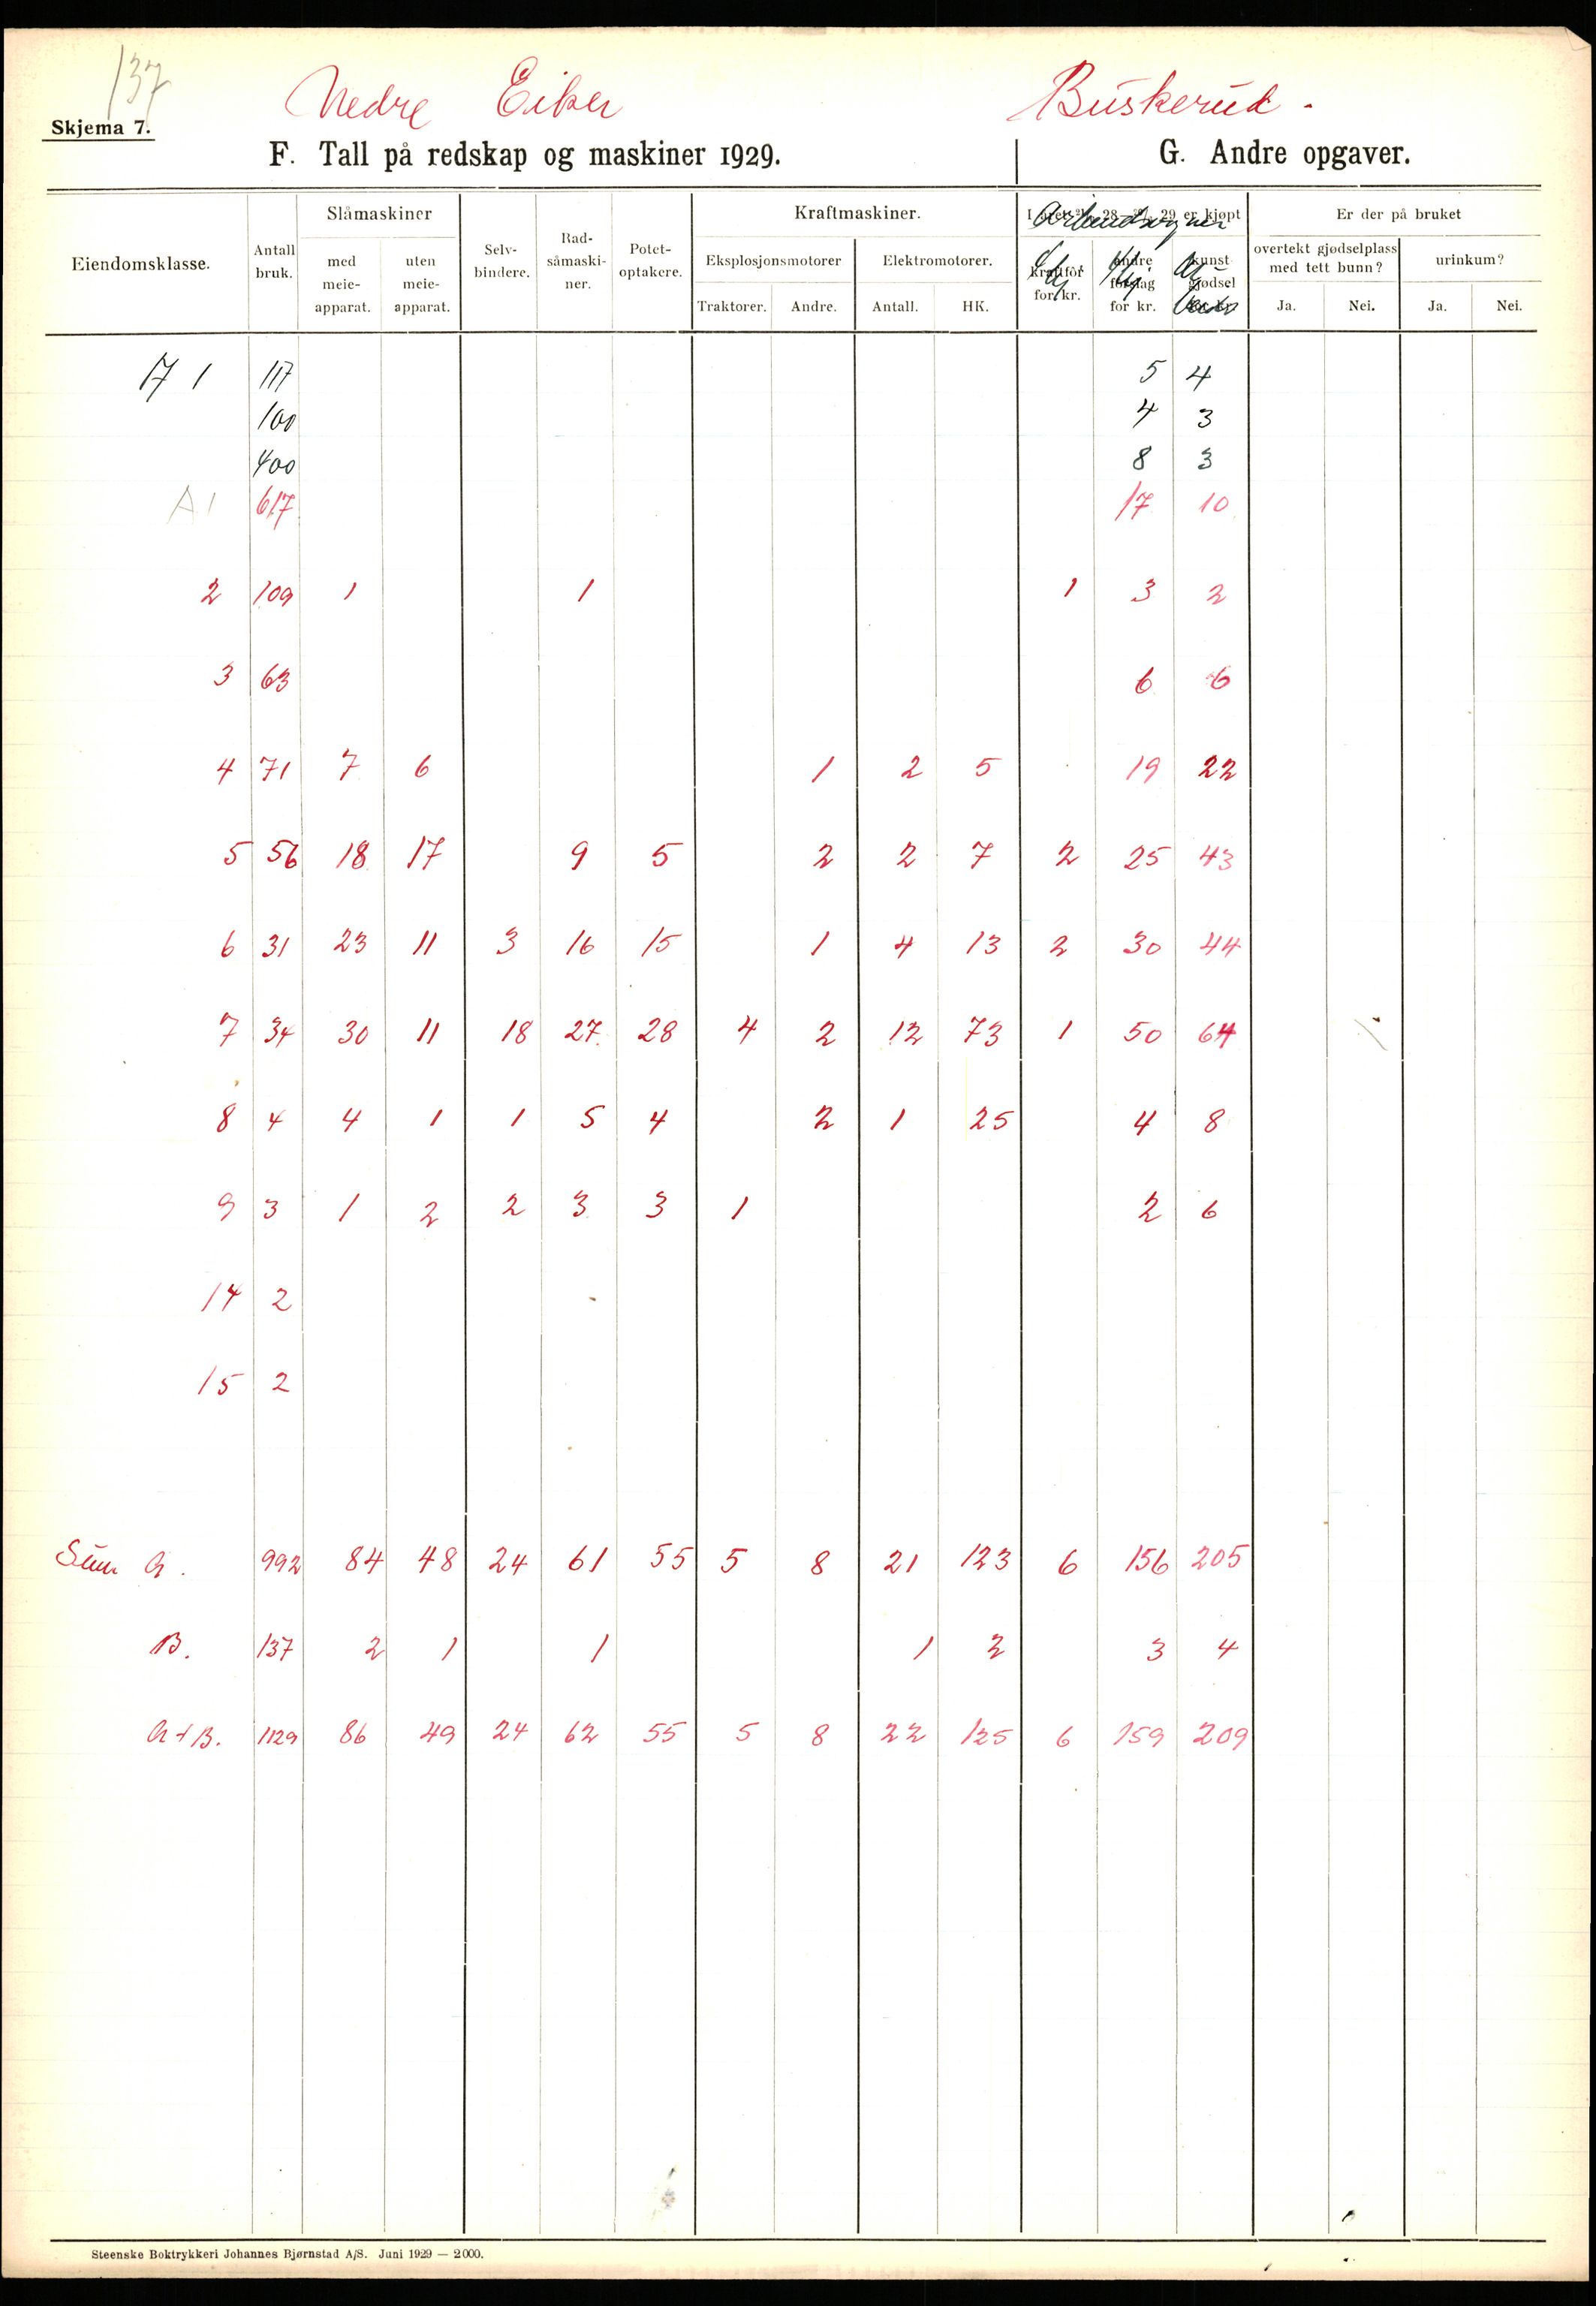 137
Nedre Eiker Buskerud.
Skjema 7.
F. Tall på redskap og maskiner 1929. G. Andre opgaver.
Eiendomsklasse. Antall bruk. Slåmaskiner med meie-apparat. uten meie-apparat. Selv-bindere. Rad-såmaski-ner. Potet-optakere. Kraftmaskiner. Eksplosjonsmotorer Traktorer. Andre. Elektromotorer. Antall. HK. Arbeidsvogner kraftfôr for kr. andre fôrslag for kr. kunst gjødsel Er der på bruket overtekt gjødselplass med tett bunn? Ja. Nei. urinkum? Ja. Nei.
17 1 117 5 4
100 4 3
400 8 3
A1 617 17 10
2 109 1 1 1 3 2
3 63 6 6
4 71 7 6 1 2 5 19 22
5 56 18 17 9 5 2 2 7 2 25 43
6 31 23 11 3 16 15 1 4 13 2 30 44
7 34 30 11 18 27 28 4 2 12 73 1 50 64
8 4 4 1 1 5 4 2 1 25 4 8
9 3 1 2 2 3 3 1 2 6
14 2
15 2
Sum A. 992 84 48 24 61 55 5 8 21 123 6 156 205
B. 137 2 1 1 1 2 3 4
A+B. 1129 86 49 24 62 55 5 8 22 125 6 159 209
Steenske Boktrykkeri Johannes Bjørnstad A/S. Juni 1929 — 2000.